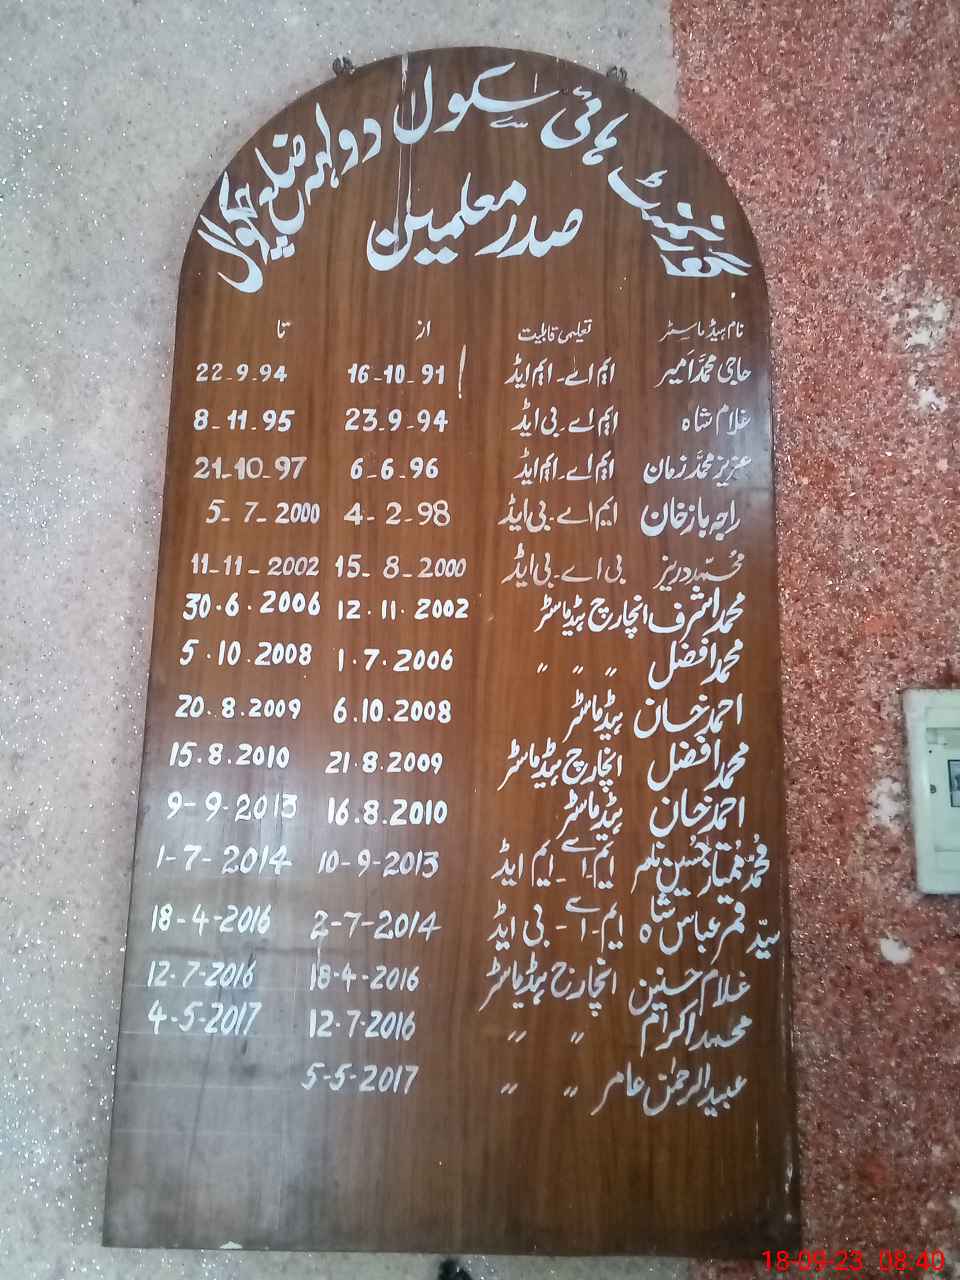 گورنمنٹ ہائی سکول دولہہ ضلع چکوال
صدر معلمین
نام ہیڈ ماسٹر تعلیمی قابلیت از تا
حاجی محمد امیر ایم اے۔ ایم ایڈ 16-10-91 22-9-94
غلام شاہ ایم اے۔ بی ایڈ 23-9-94 8-11-95
عزیز محمد زمان ایم اے۔ ایم ایڈ 6-6-96 21-10-97
راجہ باز خان ایم اے۔ بی ایڈ 4-2-98 5-7-2000
محمد دریز بی اے۔ بی ایڈ 15-8-2000 11-11-2002
محمد اشرف انچارج ہیڈ ماسٹر 12.11.2002 30.6.2006
محمد افضل 〃 〃 〃 1.7.2006 5.10.2008
احمد خان ہیڈ ماسٹر 6.10.2008 20.8.2009
محمد افضل انچارج ہیڈ ماسٹر 21.8.2009 15.8.2010
احمد خان ہیڈ ماسٹر 16.8.2010 9-9-2013
محمد ممتیاز حسین ایم۔اے۔ ایم ایڈ 10-9-2013 1-7-2014
سید قمر عباس شاہ ایم۔اے۔ بی ایڈ 2-7-2014 18-4-2016
غلام حسنین انچارج ہیڈ ماسٹر 18-4-2016 12.7.2016
محمد اکرام 〃 〃 12.7.2016 4-5-2017
عبید الرحمٰن عامر 〃 〃 5-5-2017
18-09-23 08:40